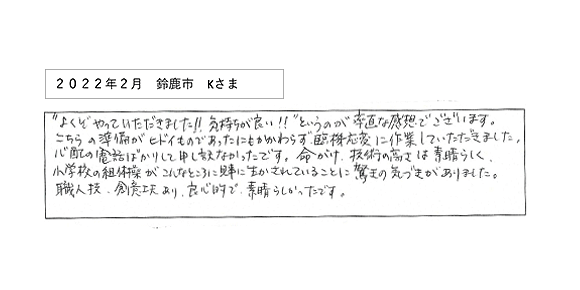 2022年2月　鈴鹿市　Kさま
"よくぞやっていただきました!!気持ちが良い!!"というのが率直な感想でございます。
こちらの準備がヒドイものであったにもかかわらず臨機応変に作業していただきました。
心配の電話ばかりして申し訳なかったです。命がけ、技術の高さは素晴らしく、
小学校の組体操がこんなところに見事に生かされていることに驚きの気づきがありました。
職人技、創意工夫あり、良心的で、素晴らしかったです。